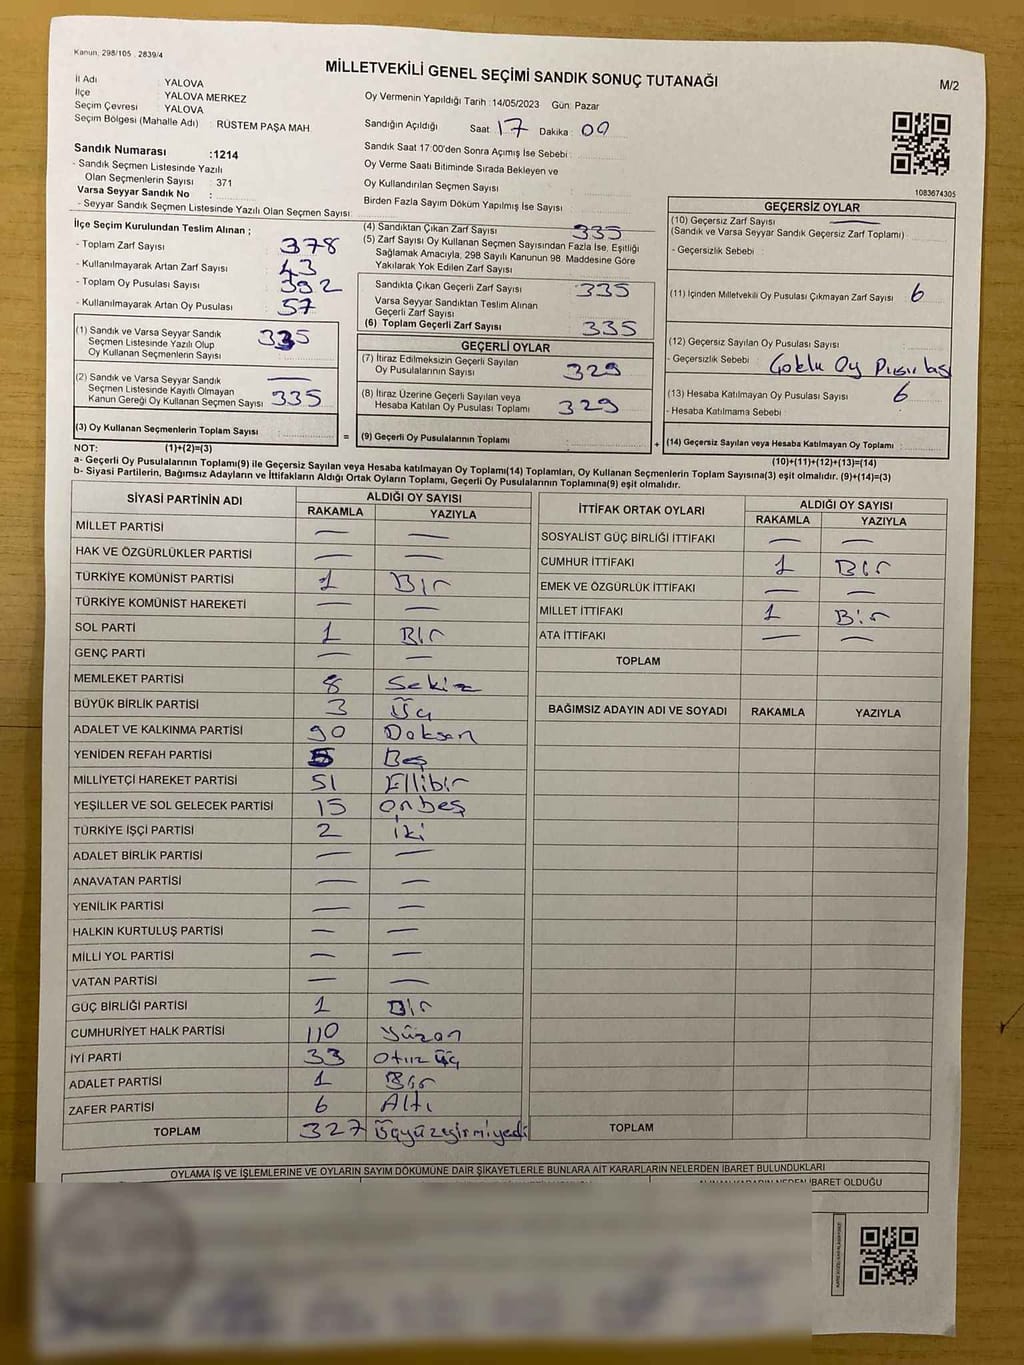 Kanun, 298/105 , 2839/4
MİLLETVEKİLİ GENEL SEÇİMİ SANDIK SONUÇ TUTANAĞI
M/2
İl Adı : YALOVA
İlçe : YALOVA MERKEZ
Seçim Çevresi : YALOVA
Seçim Bölgesi (Mahalle Adı) : RÜSTEM PAŞA MAH
Sandık Numarası :1214
- Sandık Seçmen Listesinde Yazılı
Olan Seçmenlerin Sayısı : 371
Varsa Seyyar Sandık No :
- Seyyar Sandık Seçmen Listesinde Yazılı Olan Seçmen Sayısı
Oy Vermenin Yapıldığı Tarih :14/05/2023 Gün: Pazar
Sandığın Açıldığı Saat 17 Dakika : 09
Sandık Saat 17:00'den Sonra Açımış İse Sebebi :
Oy Verme Saati Bitiminde Sırada Bekleyen ve
Oy Kullandırılan Seçmen Sayısı
Birden Fazla Sayım Döküm Yapılmış İse Sayısı :
1083674305
İlçe Seçim Kurulundan Teslim Alınan ;
- Toplam Zarf Sayısı : 378
- Kullanılmayarak Artan Zarf Sayısı : 43
- Toplam Oy Pusulası Sayısı : 392
- Kullanılmayarak Artan Oy Pusulası : 57
(1) Sandık ve Varsa Seyyar Sandık
Seçmen Listesinde Yazılı Olup
Oy Kullanan Seçmenlerin Sayısı 335
(2) Sandık ve Varsa Seyyar Sandık
Seçmen Listesinde Kayıtlı Olmayan
Kanun Gereği Oy Kullanan Seçmen Sayısı —
(3) Oy Kullanan Seçmenlerin Toplam Sayısı : 335
(4) Sandıktan Çıkan Zarf Sayısı : 335
(5) Zarf Sayısı Oy Kullanan Seçmen Sayısından Fazla İse, Eşitliği
Sağlamak Amacıyla, 298 Sayılı Kanunun 98. Maddesine Göre
Yakılarak Yok Edilen Zarf Sayısı
Sandıkta Çıkan Geçerli Zarf Sayısı : 335
Varsa Seyyar Sandıktan Teslim Alınan
Geçerli Zarf Sayısı
(6) Toplam Geçerli Zarf Sayısı : 335
GEÇERLİ OYLAR
(7) İtiraz Edilmeksizin Geçerli Sayılan
Oy Pusulalarının Sayısı : 329
(8) İtiraz Üzerine Geçerli Sayılan veya
Hesaba Katılan Oy Pusulası Toplamı
= (9) Geçerli Oy Pusulalarının Toplamı : 329
GEÇERSİZ OYLAR
(10) Geçersiz Zarf Sayısı : —
(Sandık ve Varsa Seyyar Sandık Geçersiz Zarf Toplamı)
- Geçersizlik Sebebi :
(11) İçinden Milletvekili Oy Pusulası Çıkmayan Zarf Sayısı :
(12) Geçersiz Sayılan Oy Pusulası Sayısı : 6
- Geçersizlik Sebebi : Çoklu Oy Pusulası
(13) Hesaba Katılmayan Oy Pusulası Sayısı :
- Hesaba Katılmama Sebebi :
+ (14) Geçersiz Sayılan veya Hesaba Katılmayan Oy Toplamı : 6
NOT: (1)+(2)=(3)
(10)+(11)+(12)+(13)=(14)
a- Geçerli Oy Pusulalarının Toplamı(9) ile Geçersiz Sayılan veya Hesaba katılmayan Oy Toplamı(14) Toplamları, Oy Kullanan Seçmenlerin Toplam Sayısına(3) eşit olmalıdır. (9)+(14)=(3)
b- Siyasi Partilerin, Bağımsız Adayların ve İttifakların Aldığı Ortak Oyların Toplamı, Geçerli Oy Pusulalarının Toplamına(9) eşit olmalıdır.
SİYASİ PARTİNİN ADI ALDIĞI OY SAYISI
RAKAMLA YAZIYLA
MİLLET PARTİSİ — —
HAK VE ÖZGÜRLÜKLER PARTİSİ — —
TÜRKİYE KOMÜNİST PARTİSİ 1 Bir
TÜRKİYE KOMÜNİST HAREKETİ — —
SOL PARTİ 1 Bir
GENÇ PARTİ — —
MEMLEKET PARTİSİ 8 Sekiz
BÜYÜK BİRLİK PARTİSİ 3 Üç
ADALET VE KALKINMA PARTİSİ 90 Doksan
YENİDEN REFAH PARTİSİ 5 Beş
MİLLİYETÇİ HAREKET PARTİSİ 51 Ellibir
YEŞİLLER VE SOL GELECEK PARTİSİ 15 onbeş
TÜRKİYE İŞÇİ PARTİSİ 2 İki
ADALET BİRLİK PARTİSİ — —
ANAVATAN PARTİSİ — —
YENİLİK PARTİSİ — —
HALKIN KURTULUŞ PARTİSİ — —
MİLLİ YOL PARTİSİ — —
VATAN PARTİSİ — —
GÜÇ BİRLİĞİ PARTİSİ 1 Bir
CUMHURİYET HALK PARTİSİ 110 Yüzon
İYİ PARTİ 33 otuz üç
ADALET PARTİSİ 1 Bir
ZAFER PARTİSİ 6 Altı
TOPLAM 327 Üçyüzyirmiyedi
İTTİFAK ORTAK OYLARI ALDIĞI OY SAYISI
RAKAMLA YAZIYLA
SOSYALİST GÜÇ BİRLİĞİ İTTİFAKI — —
CUMHUR İTTİFAKI 1 Bir
EMEK VE ÖZGÜRLÜK İTTİFAKI — —
MİLLET İTTİFAKI 1 Bir
ATA İTTİFAKI — —
TOPLAM
BAĞIMSIZ ADAYIN ADI VE SOYADI RAKAMLA YAZIYLA
TOPLAM
OYLAMA İŞ VE İŞLEMLERİNE VE OYLARIN SAYIM DÖKÜMÜNE DAİR ŞİKAYETLERLE BUNLARA AİT KARARLARIN NELERDEN İBARET BULUNDUKLARI
ALINAN KARARIN NEDEN İBARET OLDUĞU